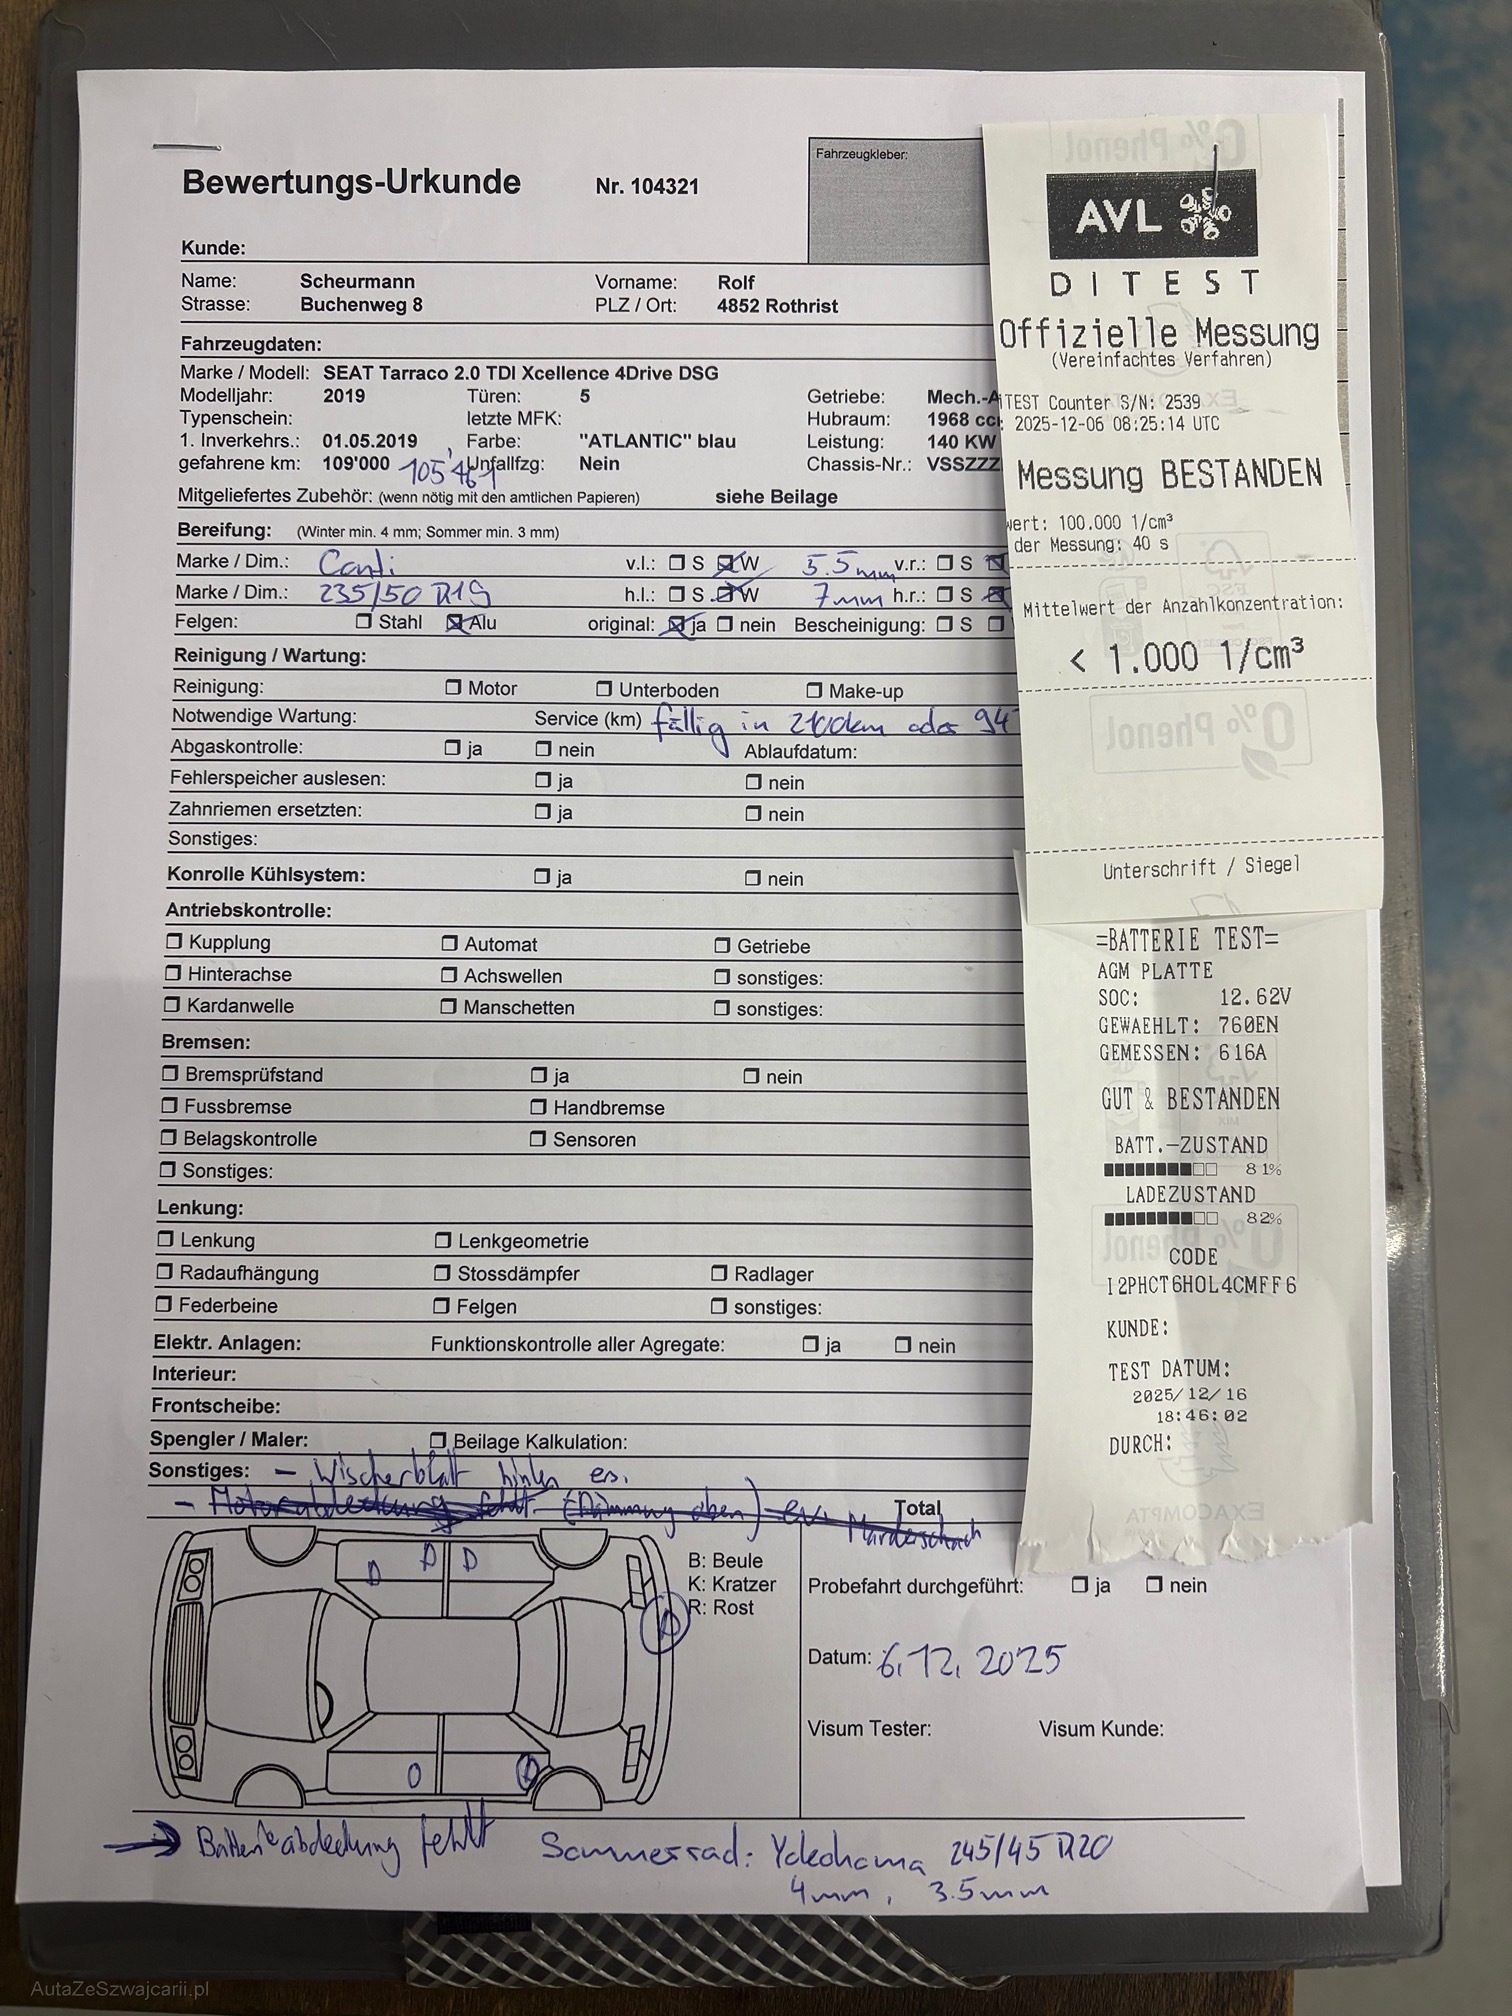 Bewertungs-Urkunde Nr. 104321
Fahrzeugkleber:
Kunde:
Name: Scheurmann Vorname: Rolf
Strasse: Buchenweg 8 PLZ / Ort: 4852 Rothrist
Fahrzeugdaten:
Marke / Modell: SEAT Tarraco 2.0 TDI Xcellence 4Drive DSG
Modelljahr: 2019 Türen: 5 Getriebe: Mech.-A
Typenschein: letzte MFK: Hubraum: 1968 cc
1. Inverkehrs.: 01.05.2019 Farbe: "ATLANTIC" blau Leistung: 140 KW
gefahrene km: 109'000 105'461 Unfallfzg: Nein Chassis-Nr.: VSSZZZ
Mitgeliefertes Zubehör: (wenn nötig mit den amtlichen Papieren) siehe Beilage
Bereifung: (Winter min. 4 mm; Sommer min. 3 mm)
Marke / Dim.: Conti v.l.: S W 5.5mm v.r.: S
Marke / Dim.: 235/50 R19 h.l.: S W 7mm h.r.: S
Felgen: Stahl Alu original: ja nein Bescheinigung: S
Reinigung / Wartung:
Reinigung: Motor Unterboden Make-up
Notwendige Wartung: Service (km) fällig in oder 94
Abgaskontrolle: ja nein Ablaufdatum:
Fehlerspeicher auslesen: ja nein
Zahnriemen ersetzten: ja nein
Sonstiges:
Konrolle Kühlsystem: ja nein
Antriebskontrolle:
Kupplung Automat Getriebe
Hinterachse Achswellen sonstiges:
Kardanwelle Manschetten sonstiges:
Bremsen:
Bremsprüfstand ja nein
Fussbremse Handbremse
Belagskontrolle Sensoren
Sonstiges:
Lenkung:
Lenkung Lenkgeometrie
Radaufhängung Stossdämpfer Radlager
Federbeine Felgen sonstiges:
Elektr. Anlagen: Funktionskontrolle aller Agregate: ja nein
Interieur:
Frontscheibe:
Spengler / Maler: Beilage Kalkulation:
Sonstiges: - Wischerblatt hinten ers.
- Motorabdeckung fehlt (Dämmung oben) ev. Marderschach
Total
D D D
B: Beule
K: Kratzer
R: Rost
D
O D
Probefahrt durchgeführt: ja nein
Datum: 6.12.2025
Visum Tester: Visum Kunde:
→ Batterieabdeckung fehlt Sommerrad: Yokohama 245/45 R20
4mm, 3.5mm
AVL
DITEST
Offizielle Messung
(Vereinfachtes Verfahren)
TEST Counter S/N: 2539
: 2025-12-06 08:25:14 UTC
Messung BESTANDEN
wert: 100.000 1/cm³
der Messung: 40 s
Mittelwert der Anzahlkonzentration:
< 1.000 1/cm³
Unterschrift / Siegel
=BATTERIE TEST=
AGM PLATTE
SOC: 12.62V
GEWAEHLT: 760EN
GEMESSEN: 616A
GUT & BESTANDEN
BATT.-ZUSTAND
81%
LADEZUSTAND
82%
CODE
I2PHCT6HOL4CMFF6
KUNDE:
TEST DATUM:
2025/12/16
18:46:02
DURCH:
0% Phenol
0% Phenol
0% Phenol
EXACOMPTA
AutaZeSzwajcarii.pl